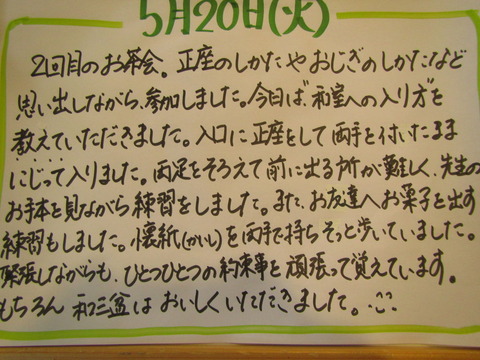 5月20日(火)
2回目のお茶会。正座のしかたやおじぎのしかたなど
思い出しながら、参加しました。今日は、和室への入り方を
教えていただきました。入口に正座をして両手を付いたまま
にじって入りました。両足をそろえて前に出る所が難しく、先生の
お手本を見ながら練習をしました。また、お友達へお菓子を出す
練習もしました。懐紙(かいし)を両手で持ちそっと歩いていました。
緊張しながらも、ひとつひとつの約束事を頑張って覚えています。
もちろん 和三盆はおいしくいただきました。